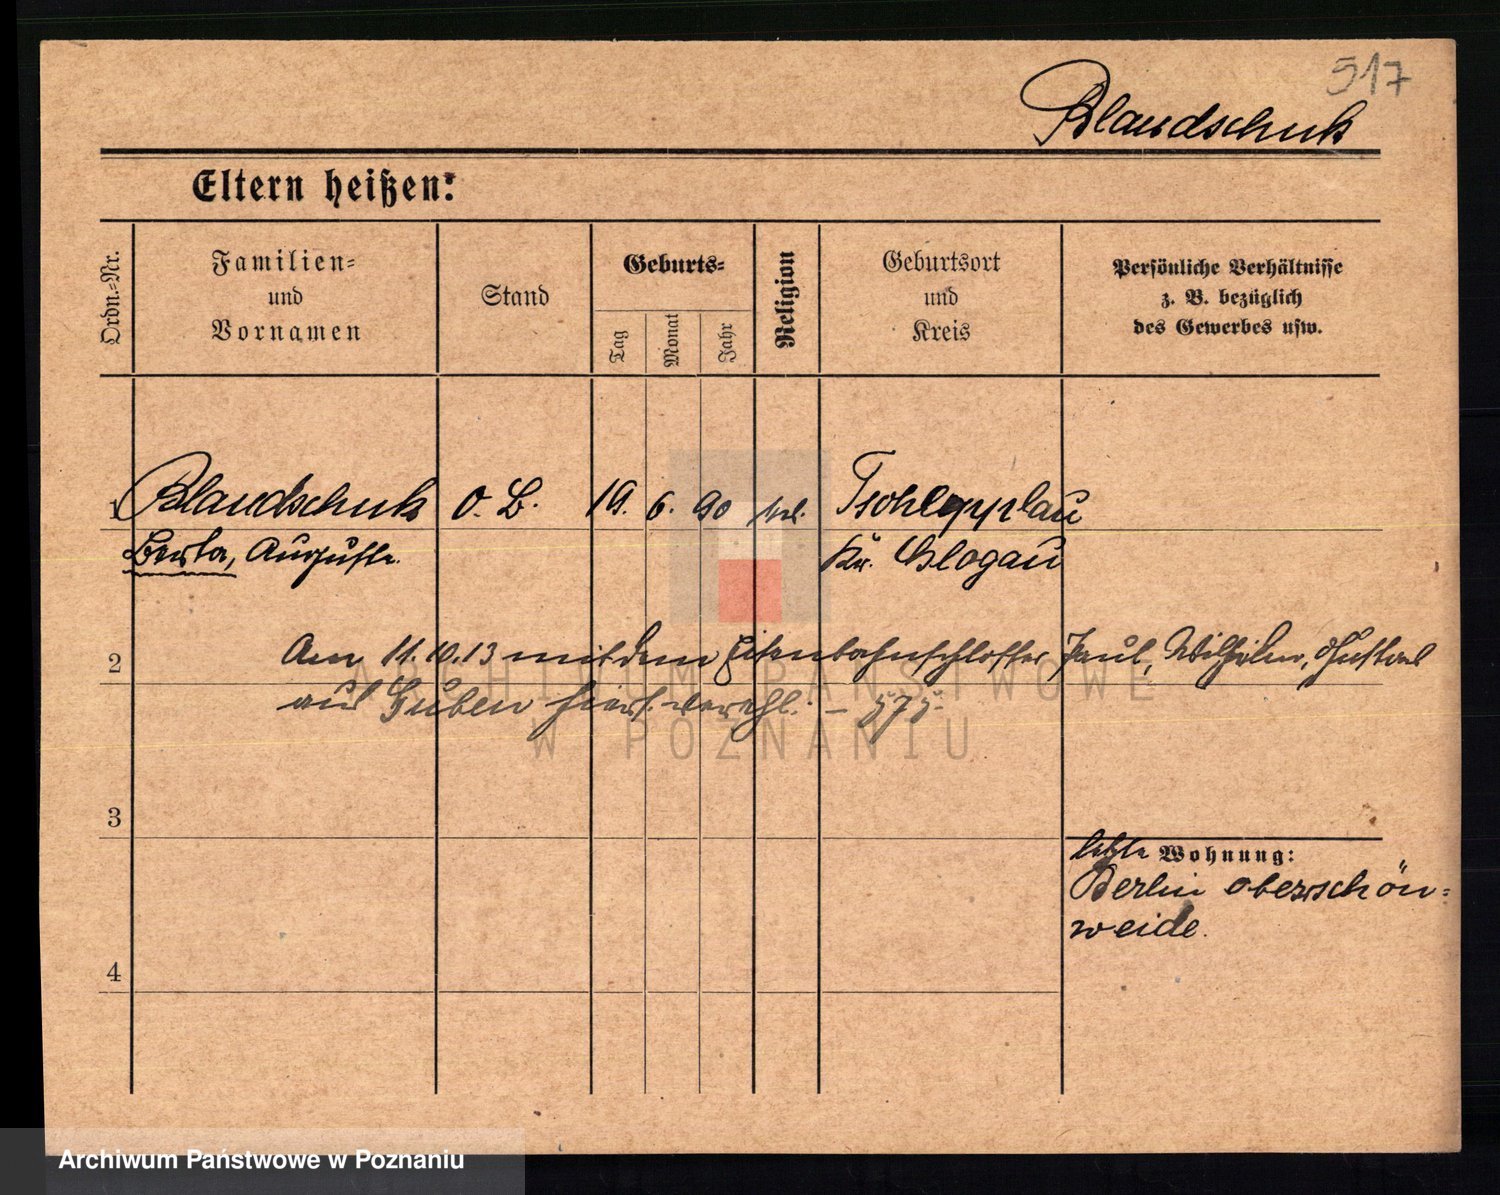 517
Blaudschuk
Eltern heißen:
Ordn.-Nr.
Familien-
und
Vornamen
Stand
Geburts-
Tag
Monat
Jahr
Religion
Geburtsort
und
Kreis
Persönliche Verhältnisse
z. B. bezüglich
des Gewerbes usw.
1 Blaudschuk O. B. 19. 6. 90 Tschepplau
Berta, Auguste. Kr. Glogau
2 Am 11.10.13 mit dem Eisenbahnschlosser Paul, Wilhelm, Gustav
aus Guben hier verehl. – 575-
3
letzte Wohnung:
Berlin oberschön-
weide.
4
ARCHIWUM PAŃSTWOWE
W POZNANIU
Archiwum Państwowe w Poznaniu